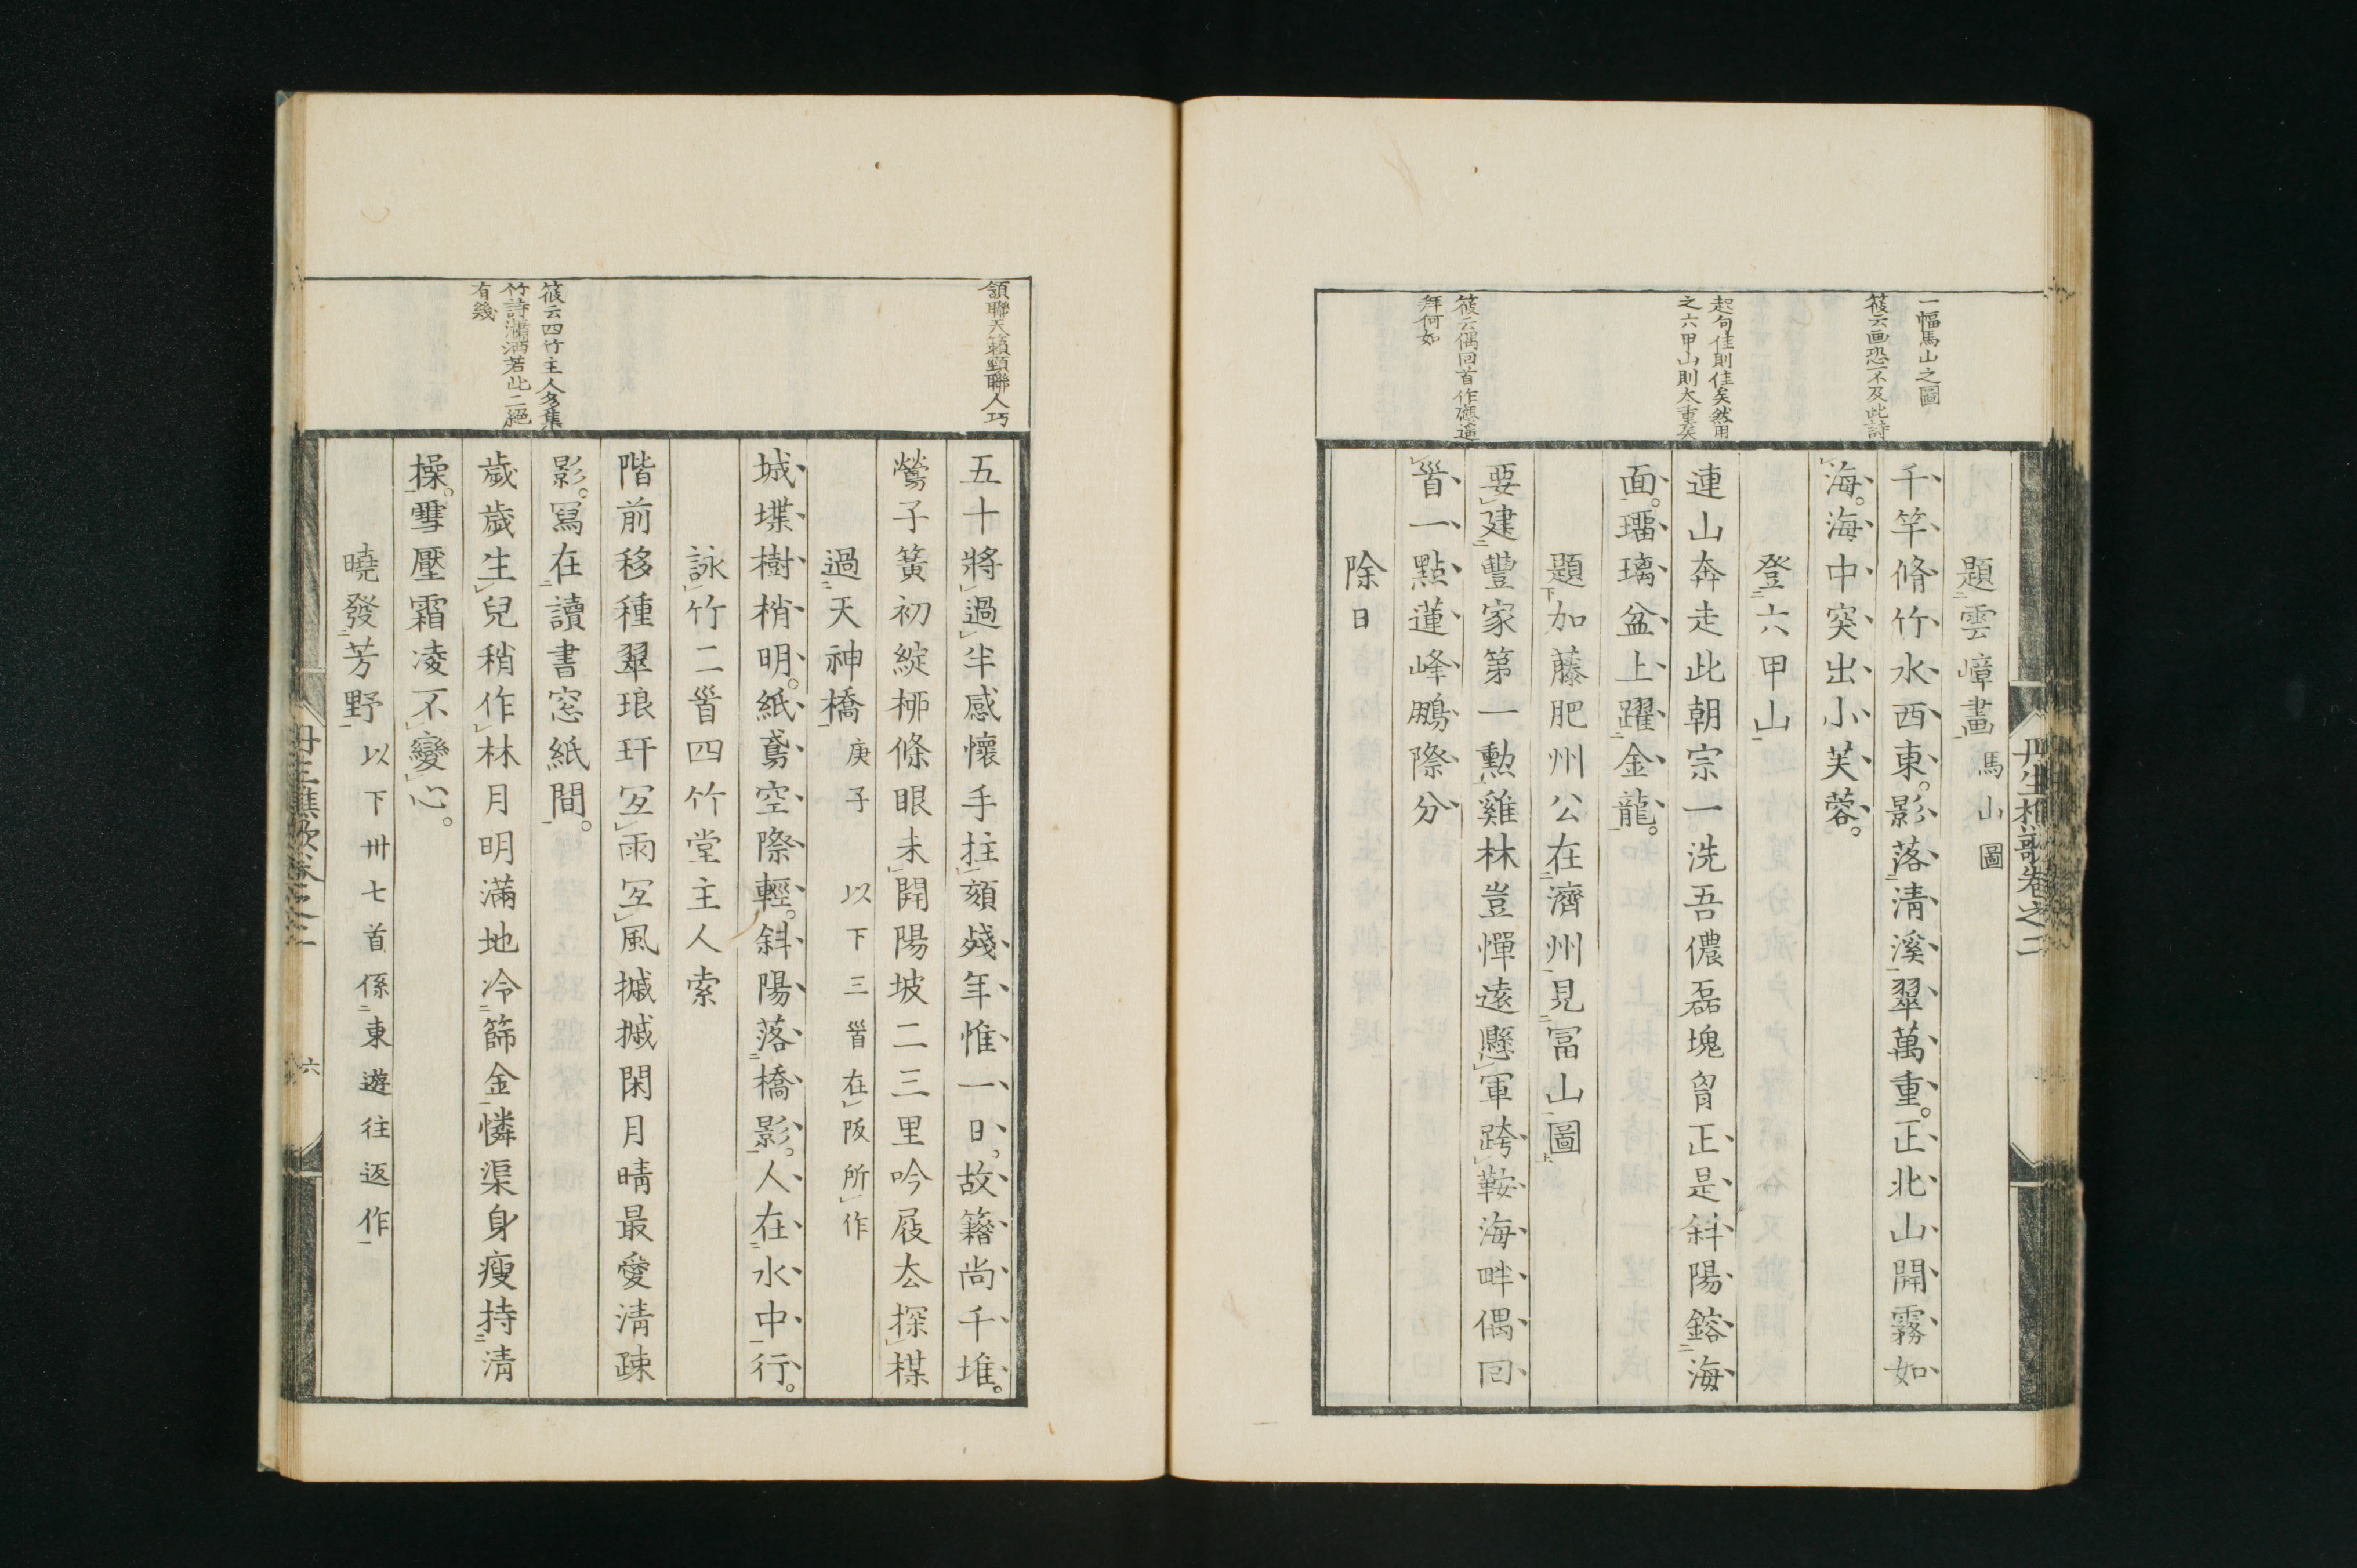 一幅馬山之圖
筱云画恐不及此詩
起句佳則佳矣然用
之六甲山則太重矣
筱云偶回首作應遙
拜何如
題雲嶂畫馬山圖
千竿脩竹水西東影落清溪翠萬重正北山開霧如
海海中突出小芙蓉
登六甲山
連山奔走此朝宗一洗吾儂磊塊胷正是斜陽鎔海
面瑠璃盆上躍金龍
題加藤肥州公在濟州見冨山圖
要建豐家第一勲雞林豈憚遠懸軍跨鞍海畔偶回
首一點蓮峰鵬際分
除日
頷聯天籟頸聯人巧
筱云四竹主人多集
竹詩瀟洒若此二絕
有幾
五十將過半感懷手拄頦殘年惟一日故籍尚千堆
鶯子簧初綻桺條眼未開陽坡二三里吟屐去探楳
過天神橋庚子 以下三首在阪所作
城堞樹梢明紙鳶空際輕斜陽落橋影人在水中行
詠竹二首四竹堂主人索
階前移種翠琅玕宜雨宜風摵摵閑月晴最愛清疎
影冩在讀書窓紙間
歲歲生兒稍作林月明滿地冷篩金憐渠身瘦持清
操雪壓霜凌不變心
曉發芳野以下卅七首係東遊往返作
丹生樵歌卷之二
六